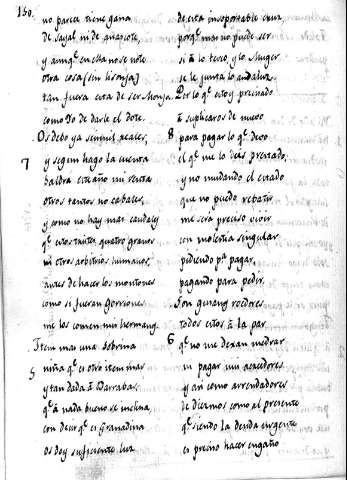 130.
no parece tiene gana
de sayal ni de anascote,
y aunqe. en ella no se note
otra cosa (sin lisonja)
tan fuera esta de ser Monja
como Yo de darle el dote.
Os debo ya seis mil reales,
7
y segun hago la cuenta
saldra este año mi renta
otros tantos no cabales,
y como no hay mas caudales
qe. estos tristes quatro granos
ni otros arbitrios humanos,
antes de hacer los montones
como si fueran gorriones
me los comen mis hermanos
Item mas una sobrina
5
niña qe. es otro item mas
y tan dada â Barrabas,
qe. â nada bueno se inclina,
con decir qe. es Granadina
os doy suficiente luz
de esta insoportable cruz,
porqe. mas no puede ser
si â lo terco, y lo Muger
se le junta lo andaluz.
Por lo qe. estoy precisado
8
â suplicaros de nuevo
para pagar lo qe. devo
el qe. me lo deis prestado,
y no mudando el estado
que no puedo rebatir
me será preciso vivir
con molestia singular
pidiendo pa. pagar,
pagando para pedir.
Son gusanos roedores
todos estos â la par
6
qe. no me dexan medrar
ni pagar mis acreedores
y asi como arrendadores
de diezmos como al presente
qe. siendo la deuda urgente
es preciso hacer engaño